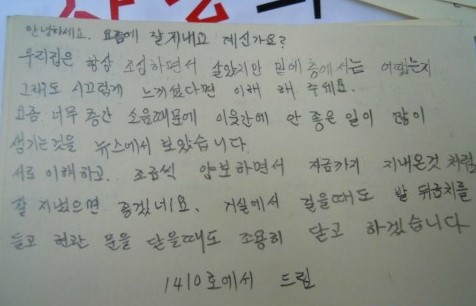 안녕하세요. 요즘에 잘 지내고 계신가요?
우리집은 항상 조심하면서 살았지만 밑에층에서는 어땠는지
그래도 시끄럽게 느끼셨다면 이해 해 주세요.
요즘 너무 층간 소음때문에 이웃간에 안 좋은 일이 많이
생기는것을 뉴스에서 보았습니다.
서로 이해하고. 조금씩 양보하면서 지금까지 지내온것 처럼
잘 지냈으면 좋겠네요. 거실에서 걸을때도 발 뒤꿈치를
들고 현관 문을 닫을때도 조용히 닫고 하겠습니다
1410호에서 드림